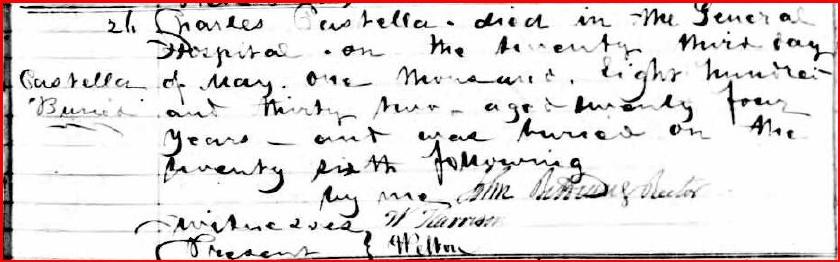 26 Charles Castella - died in the General
Hospital - on the twenty third day
Castella of May. One thousand. Eight hundred
Buried and thirty two - aged twenty four
years - and was buried on the
twenty sixth following
by me John Rector
Witnesses W Harrison
Present } Wilton